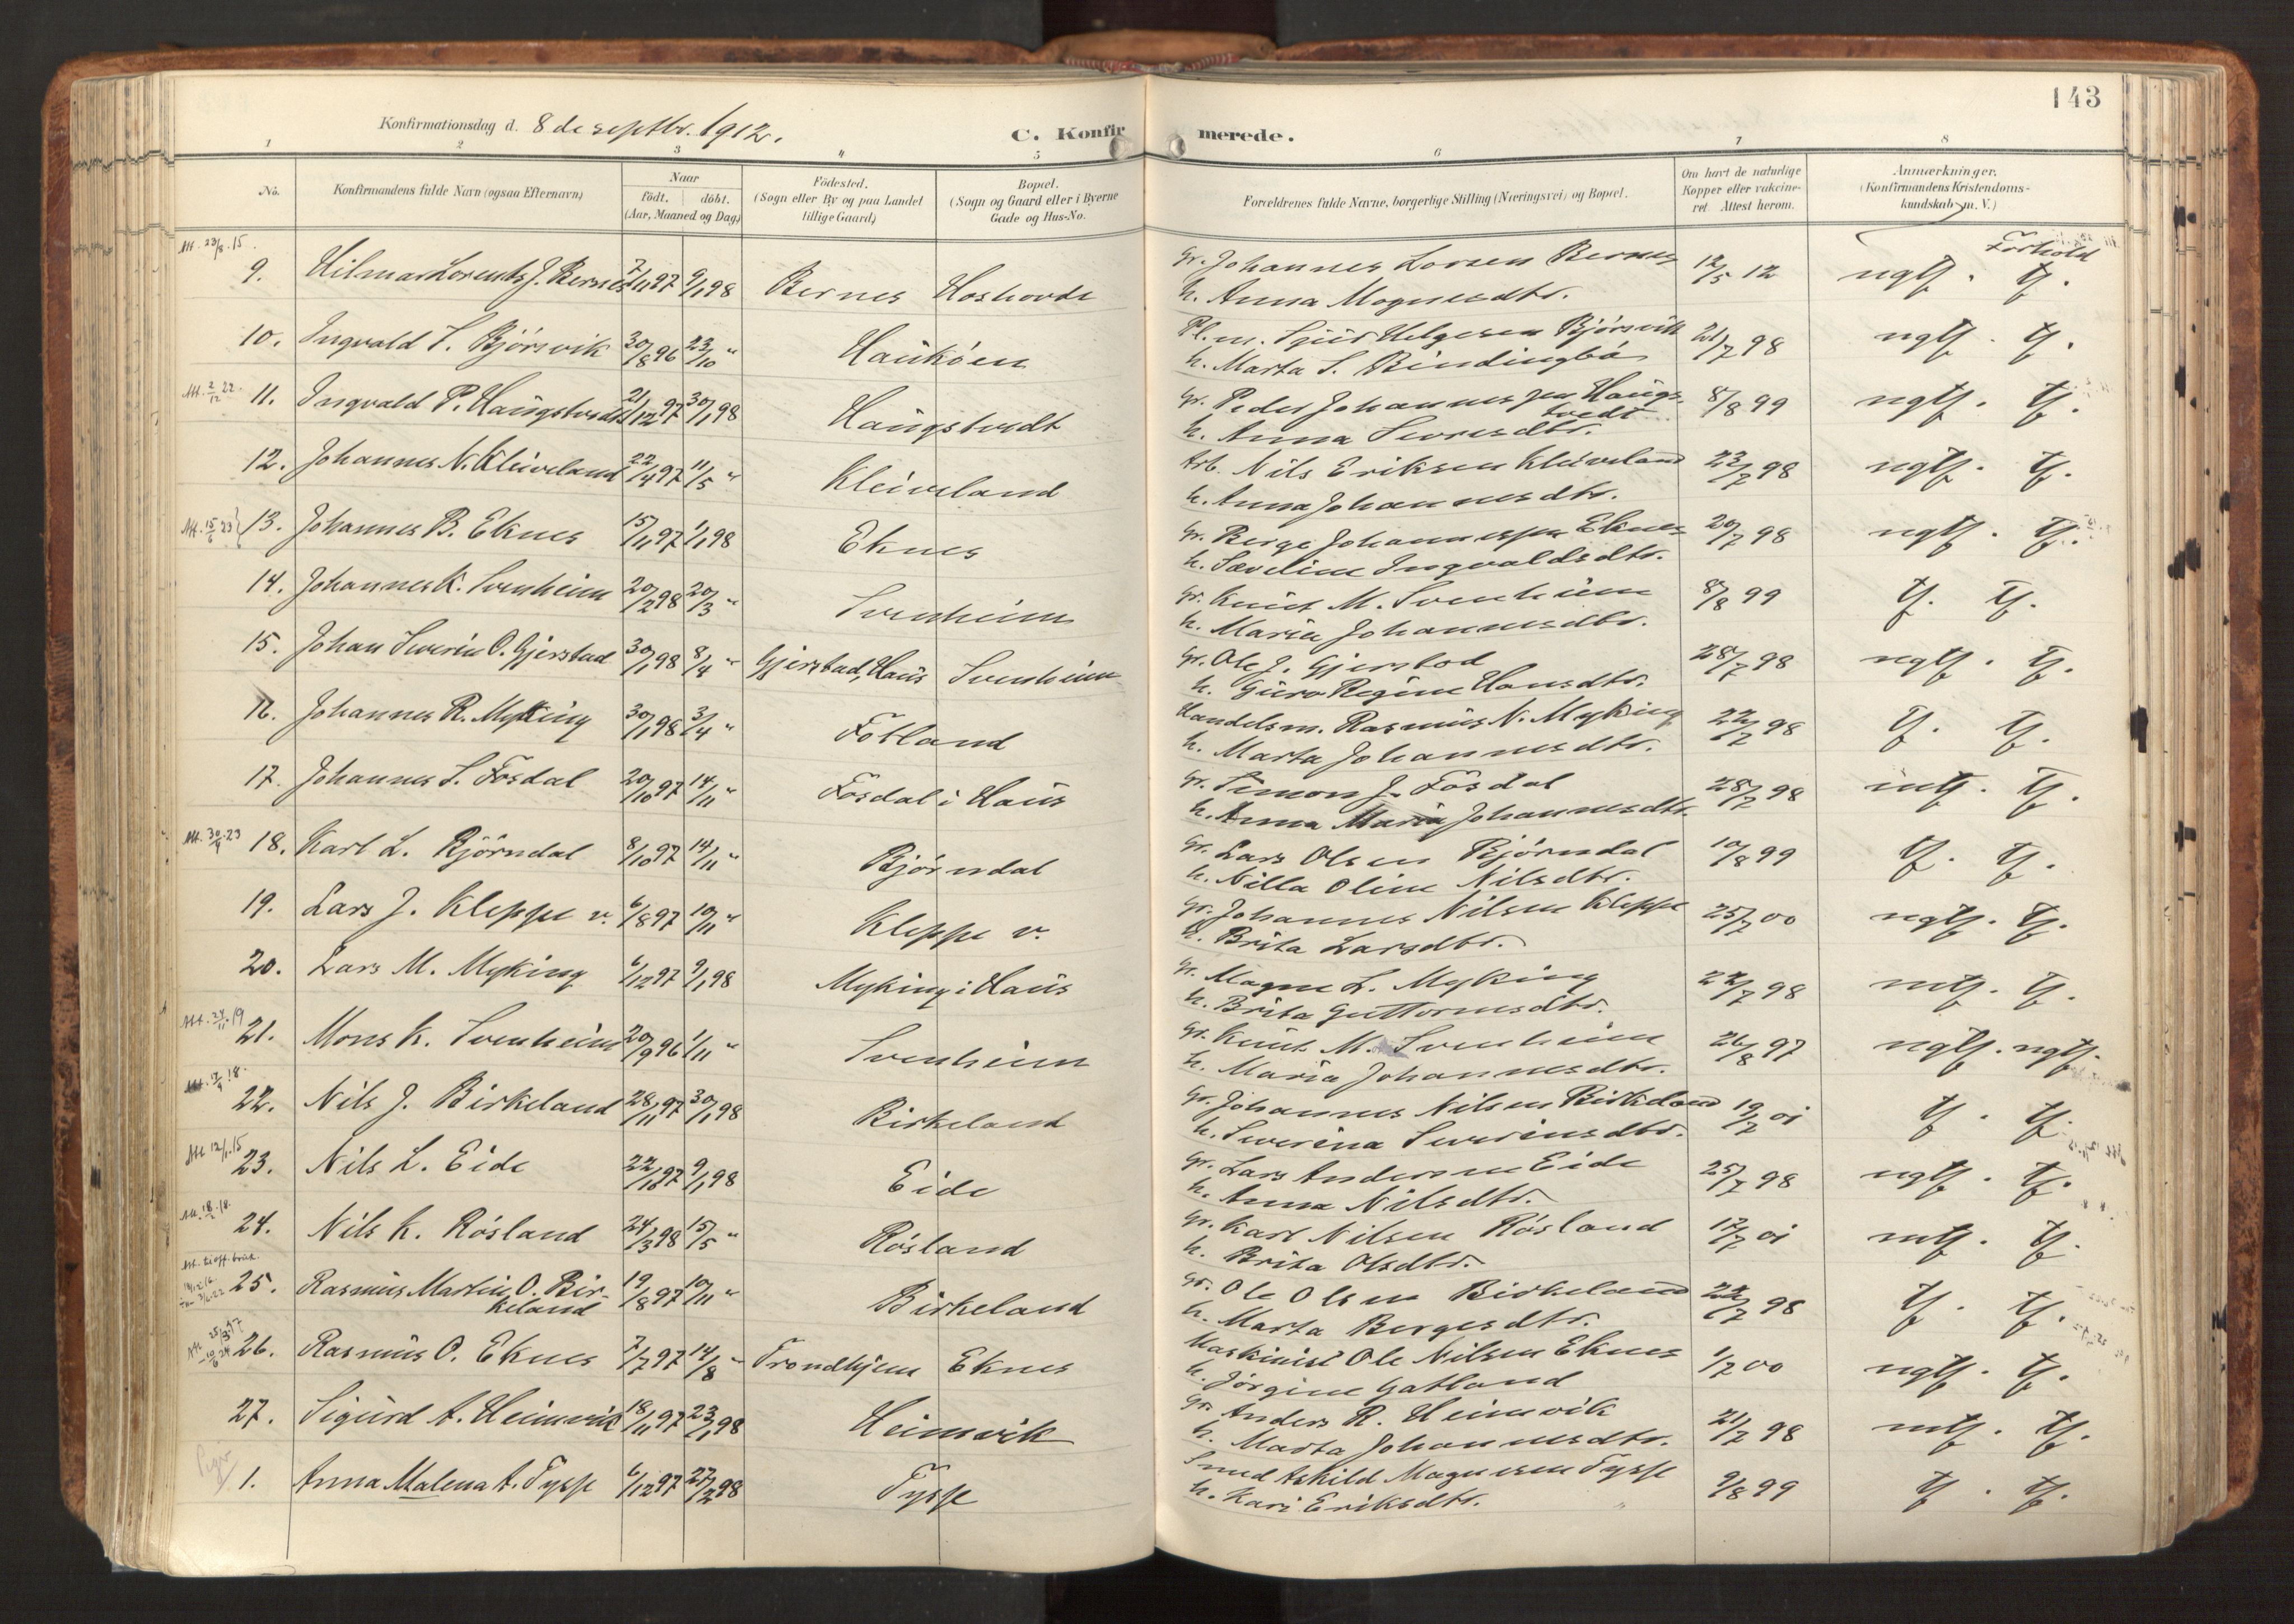 143
Konfirmationsdag d. 8de septbr. 1912.
C. Konfirmerede.
1 2 3 4 5 6 7 8
No.
Konfirmandens fulde Navn (ogsaa Efternavn)
Naar
födt. döbt.
(Aar, Maaned og Dag)
Födested.
(Sogn eller By og paa Landet
tillige Gaard)
Bopæl.
(Sogn og Gaard eller i Byerne
Gade og Hus-No.
Forældrenes fulde Navne, borgerlige Stilling (Næringsvei) og Bopæl.
Om havt de naturlige
Kopper eller vakcine-
ret Attest herom.
Anmærkninger.
(Konfirmandens Kristendoms-
kundskab m. V.)
Forhold
Att. 23/8.15.
9. Hilmar Lorents J. Bernes 7/11 97 9/1 98 Bernes Hoshovde Gr. Johannes Larsen Bernes 12/5 12 ngtf. tf.
h. Anna Magnesdtr.
10. Ingvald S. Bjørsvik 30/8 96 23/10 " Haukøen Pl.m. Sjur Helgesen Bjørsvik 21/7 98 ngtf. tf.
h. Marta S. Bindingbø
Att. 2/12 22.
11. Ingvald P. Haugstvedt 21/12 97 30/1 98 Haugstvedt Gr. Peder Johannessen Haugs- 8/8 99 ngtf. tf.
tvedt
h. Anna Sevresdtr.
12. Johannes N. Kleiveland 22/4 97 11/5 " Kleiveland Arb. Nils Eriksen Kleiveland 23/7 98 ngtf. tf.
h. Anna Johannesdtr.
Att. 15/6 23
13. Johannes B. Eknes 15/11 97 1/1 98 Eknes Gr. Berge Johannessen Eknes 20/7 98 ngtf. tf.
h. Sæveline Ingvaldsdtr.
14. Johannes K. Svenheim 20/2 98 20/3 " Svenheim Gr. Knut M. Svenheim 8/8 99 tf. tf.
h. Maria Johannesdtr.
15. Johan Severin O. Gjerstad 30/1 98 8/4 " Gjerstad, Haus Svenheim Gr. Ole J. Gjerstad 28/7 98 ngtf. tf.
h. Guro Regine Hansdtr.
16. Johannes R. Myking 30/1 98 3/4 " Fotland Handelsm. Rasmus N. Myking 22/7 98 tf. tf.
h. Marta Johannesdtr.
17. Johannes S. Fosdal 20/10 97 14/11 " Fosdal i Haus Gr. Simon J. Fosdal 28/7 98 mtf. tf.
h. Anna Maria Johannesdtr.
Att. 30/4.23
18. Karl L. Bjørndal 8/10 97 14/11 " Bjørndal Gr. Lars Olsen Bjørndal 10/8 99 tf. tf.
h. Nilla Oline Nilsdtr.
19. Lars J. Kleppe v. 6/8 97 10/11 " Kleppe v. Gr. Johannes Nilsen Kleppe 25/7 00 ngtf. tf.
h. Brita Larsdtr.
20. Lars M. Myking 6/12 97 9/1 98 Myking i Haus Gr. Magne L. Myking 22/7 98 mtf. tf.
h. Brita Guttormsdtr.
Att. 24/11.19
21. Mons K. Svenheim 20/9 96 1/11 " Svenheim Gr. Knut M. Svenheim 26/8 97 ngtf. ngtf.
h. Maria Johannesdtr.
22. Nils J. Birkeland 28/11 97 30/1 98 Birkeland Gr. Johannes Nilsen Birkeland 19/7 01 tf. tf.
h. Severina Severinsdtr.
Att. 12/1.15
23. Nils L. Eide 22/10 97 9/1 98 Eide Gr. Lars Andersen Eide 25/7 98 ngtf. tf.
h. Anna Nilsdtr.
Att. 18/2.18.
24. Nils K. Røsland 24/3 98 15/5 " Røsland Gr. Karl Nilsen Røsland 17/7 01 mtf. tf.
h. Brita Olsdtr.
25. Rasmus Martin O. Bir- 19/8 97 10/11 " Birkeland Gr. Ole Olsen Birkeland 22/7 98 tf. tf.
keland
h. Marta Bergesdtr.
26. Rasmus O. Eknes 7/7 97 14/8 " Trondhjem Eknes Maskinist Ole Nilsen Eknes 1/7 00 ngtf. tf.
h. Jørgine Gatland
27. Sigurd A. Heimvik 18/11 97 23/1 98 Heimvik Gr. Anders R. Heimvik 21/7 98 mtf. tf.
h. Marta Johannesdtr.
Piger
1. Anna Malena A. Tysse 6/12 97 27/2 98 Tysse Smed Askild Magnesen Tysse 9/8 99 tf. tf.
h. Kari Eriksdtr.